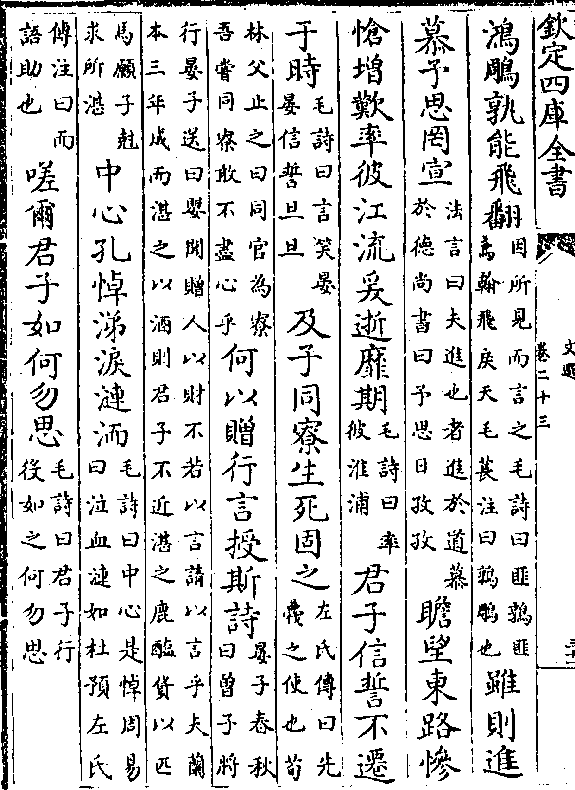 欽定四庫全書
文選
卷二十三
鴻鵰孰能飛翻
因所見而言之毛詩曰匪鶉匪
鳶翰飛戾天毛萇注曰鶉鵰也
雖則進
慕予思罔宣
法言曰夫進也者進於道慕
於德尚書曰予思日孜孜
瞻望東路慘
愴增歎率彼江流爰逝靡期
毛詩曰率
彼淮浦
君子信誓不遷
于時
毛詩曰言笑晏
晏信誓旦旦
及子同寮生死固之
左氏傳曰先
蔑之使也荀
林父止之曰同官為寮
吾嘗同寮敢不盡心乎
何以贈行言授斯詩
晏子春秋
曰曾子將
行晏子送曰嬰聞贈人以財不若以言請以言乎夫蘭
本三年成而湛之以酒則君子不近湛之鹿醢貨以匹
馬願子尅
求所湛
中心孔悼涕淚漣洏
毛詩曰中心是悼周易
曰泣血漣如杜預左氏
傳注曰而
語助也
嗟爾君子如何勿思
毛詩曰君子行
役如之何勿思